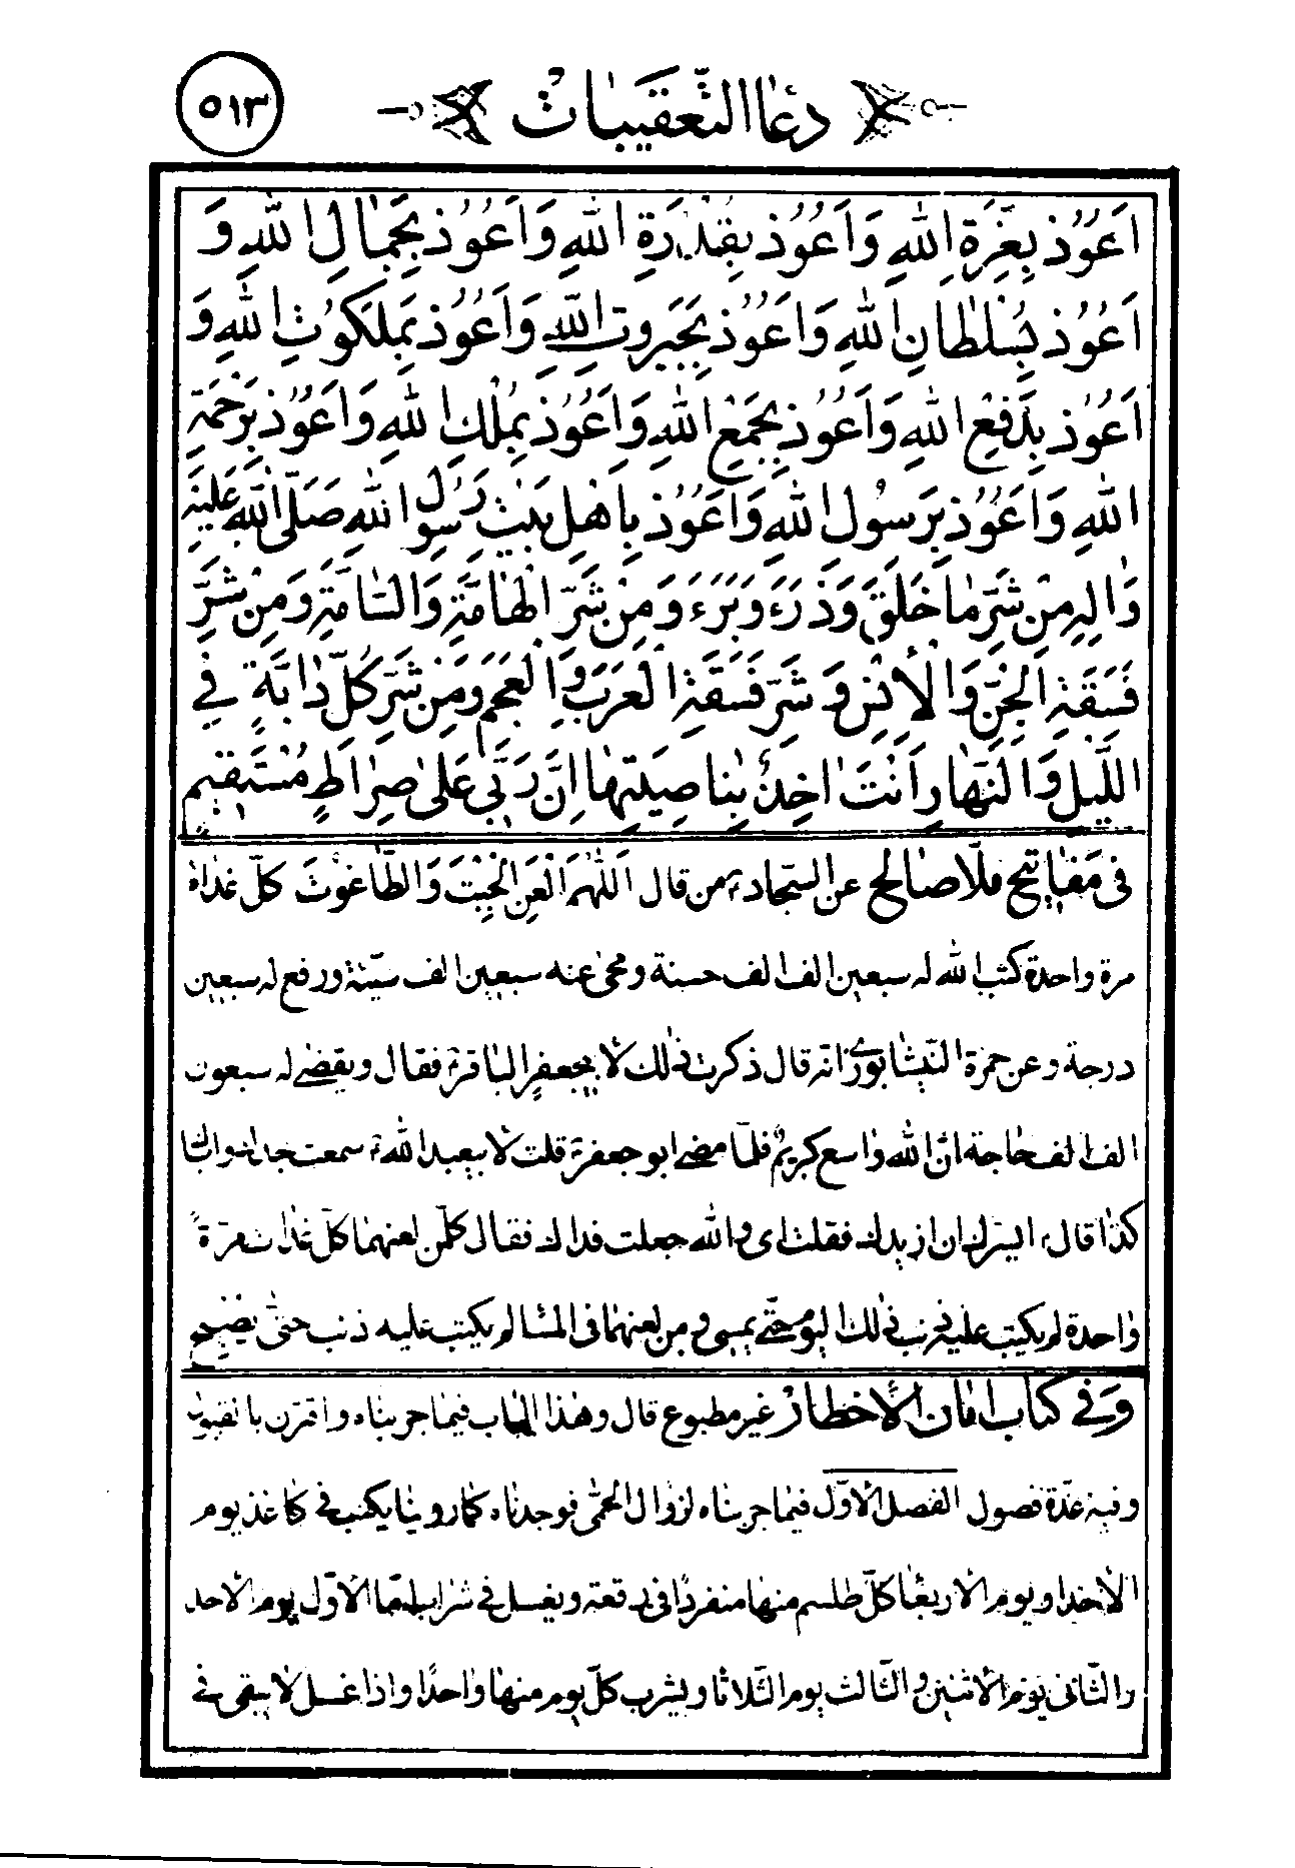 ٥١٣
دعاء التعقيبات
اَعُوُذ بِعِزَّةِ اللهِ وَاَعُوُذ بِقُدْرَةِ اللهِ وَاَعُوُذ بِجَمٰالِ اللهِ وَ
اَعُوُذ بِسُلْطٰانِ اللهِ وَاَعُوُذ بِجَبَروتِ اللهِ وَاَعُوُذ بِمَلَكُوُتِ اللهِ وَ
اَعُوُذ بِدَفْعِ اللهِ وَاَعُوُذ بِجَمْعِ اللهِ وَاَعُوُذ بِمُلْكِ اللهِ وَاَعُوُذ بِرَحْمَةِ
اللهِ وَاَعُوُذ بِرَسُولِ اللهِ وَاَعُوُذ بِاَهْلِ بَيْتِ رَسُولِ اللهِ صَلَّى اللهُ عَلَيْهِ
وَاٰلِهِ مِنْ شَرِّ مٰا خَلَقَ وَذَرَءَ وَبَرَءَ وَمِنْ شَرِّ الْهٰامَّةِ وَالسّٰامَّةِ وَمِنْ شَرِّ
فَسَقَةِ الْجِنِّ وَالْاِنْسِ وَ شَرِّ فَسَقَةِ الْعَرَبِ وَالْعَجَمِ وَمِنْ شَرِّ كُلِّ دٰابَّةٍ فِي
اللَّيْلِ وَالنَّهٰارِ اَنْتَ اٰخِذٌ بِنٰاصِيَتِهٰا اِنَّ رَبّي عَلىٰ صِرٰاطٍ مُسْتَقيمٍ
في مَفٰاتيح ملّا صٰالح عن السجّاد من قال اَللّٰهُمَّ الْعَنِ الْجِبْتَ وَالطّٰاغوُتَ كلّ غداة
مرة واحدة كتب الله له سبعين الف الف حسنة ومحى عنه سبعين الف الف سيّئة ورفع له سبعين
درجة وعن حمزة النيشابوري انّه قال ذكرت ذلك لابي جعفر الباقر فقال ويقضى له سبعون
الف الف حٰاجة انّ الله وٰاسع كريم فلمّا مضى ابو جعفر قلت لابي عبد الله سمعت
كذا قال ايسرّك ان ازيدك فقلت اى والله جعلت فداك فقال كلّ من لعنهما كلّ غداة مرّة
وٰاحدة لم يكتب عليه ذنب في ذلك اليوم حتّى يمسي ومن لعنهما في المسٰا لم يكتب عليه ذنب حتّى يصبح
وَفي كتٰاب امٰان الْاخطار غير مطبوع قال وهٰذا الباب فيمٰا جربناه واقترن بالقبول
وفيه عدّة فصول الفصل الاوّل فيمٰا جربناه لزوٰال الحمّى فوجدناه كمٰا روينا يكتب في كٰاغذ يوم
الاحد او يوم الاربعٰا كلّ طلسم منهٰا منفردًا في رقعة ويغسل في شرٰاب امّا الاوّل يوم الاحد
والثّاني يوم الاثنين والثّالث يوم الثّلاثٰا ويشرب كلّ يوم منهٰا وٰاحدًا واذا غسل لا يبقى في